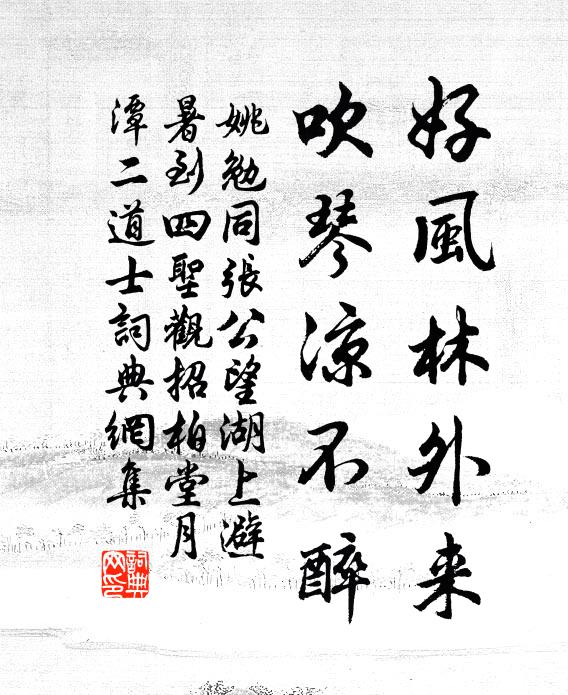 好風林外来
吹琴涼不醉
姚勉同張公望湖上避
暑到四聖觀招柏堂月
潭二道士詞典網集
詞典
网印